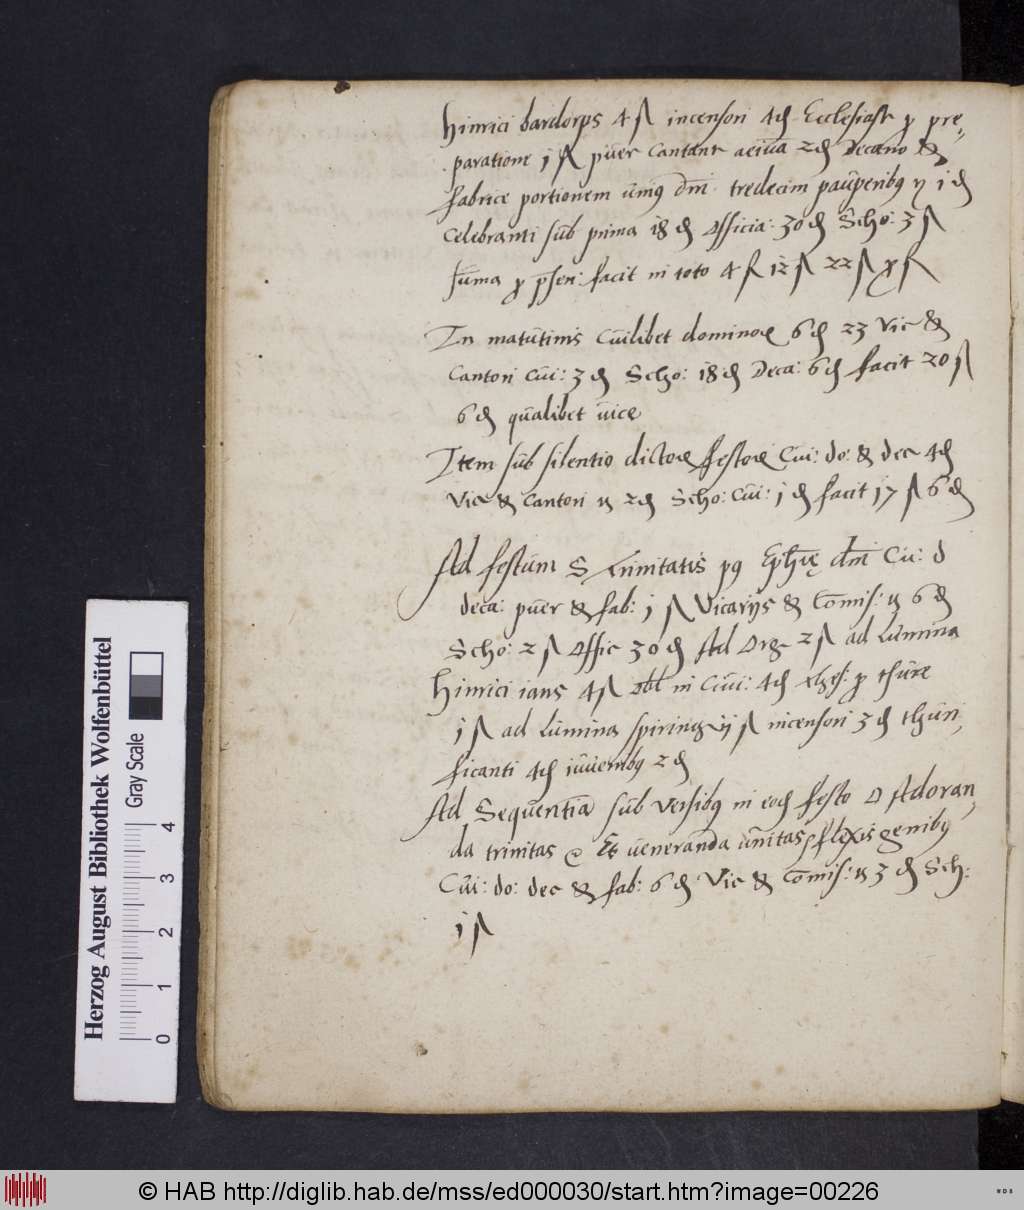 hinrici bardorps 4 ß incensori 4 ₰ Ecclesiast p pre
paratione j ß puer Cantant 2 ₰ Decano &
fabrice portionem unius dni tredecim pauperibus j ₰
Celebranti sub prima i8 ₰ Officia: 30 ₰ Scho: 3 ß
suma p psen: facit in toto 4 ß 12 ß 22 ß
In matutinis Cuilibet dominor 6 ₰ 23 Vic &
Cantori Cui: 3 ₰ Scho: i8 ₰ Deca: 6 ₰ facit 20 ß
6 ₰ qualibet vice
Item sub silentio dictor festor Cui: do: & dec 4 ₰
Vic & Cantori 2 ₰ Scho: Cui: j ₰ facit i7 ß 6 ₰
Ad festum S Trinitatis Cui: d
deca: puer & fab: j ß Vicarijs & Comis: 6 ₰
Scho: 2 ß Offic 30 ₰ Ad Org 2 ß ad Lumina
Hinrici ians 4 ß obl in Cui: 4 ₰ p thure
j ß ad Lumina spiring ij ß incensori 3 ₰ thuri
ficanti 4 ₰ iuvenibus 2 ₰
Ad Sequentia sub versibus in eod festo O Adoran
da trinitas Et veneranda unitas flexis genibus
Cui: do: dec & fab: 6 ₰ Vic & Comis: 3 ₰ Sch:
j ß
Herzog August Bibliothek Wolfenbüttel
Gray Scale
0 1 2 3 4
© HAB http://diglib.hab.de/mss/ed000030/start.htm?image=00226